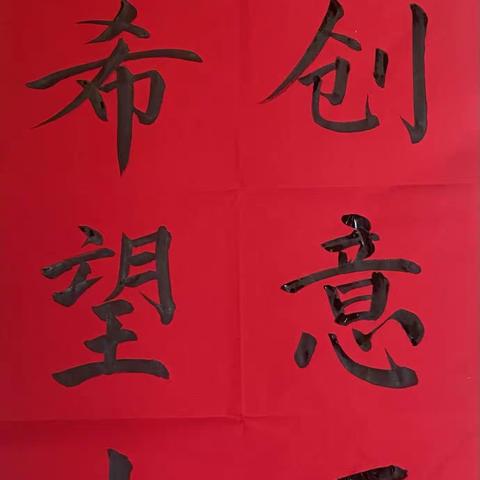 创意
希望